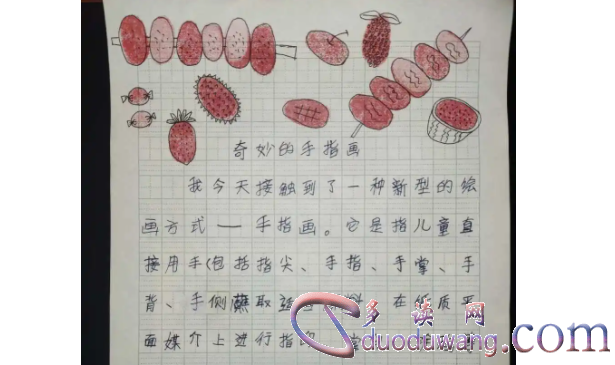 奇妙的手指画
我今天接触到了一种新型的绘
画方式——手指画。它是指儿童直
接用手(包括指尖、手指、手掌、手
背、手侧蘸取适 在纸质平
面媒介上进行指
多读网
duoduwang.com